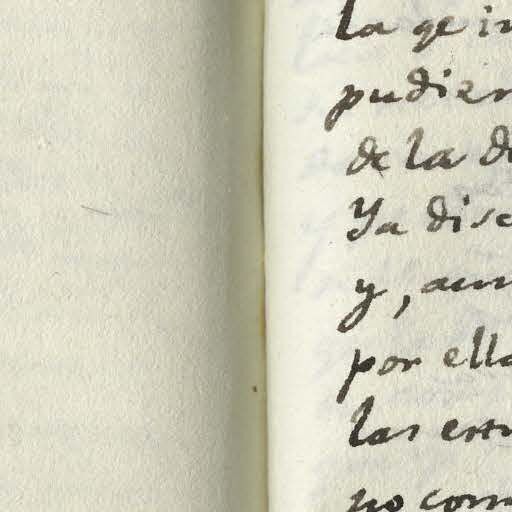 la qe in
pudier
de la de
Ya disc
y, aun
por ella
las
no com